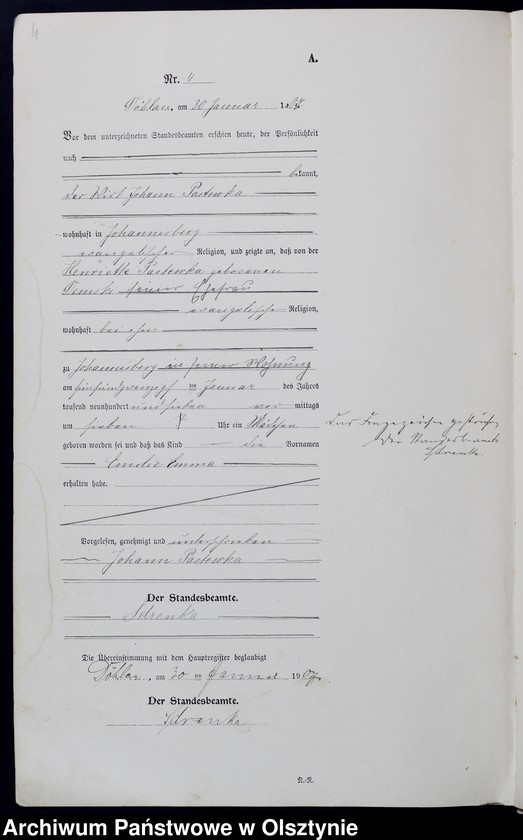 4
A.
Nr. 4
Döhlau, am 30 Januar 1907
Vor dem unterzeichneten Standesbeamten erschien heute, der Persönlichkeit
nach
bekannt,
der Wirt Johann Pastewka
wohnhaft in Johannisberg
evangelischer Religion, und zeigte an, daß von der
Henriette Pastewka geborenen
seiner Ehefrau
evangelische Religion,
wohnhaft bei ihm
zu Johannisberg in seiner Wohnung
am fünfundzwanzigsten Januar des Jahres
tausend neunhundert und sieben vor mittags
um sieben Uhr ein Mädchen
geboren worden sei und daß das Kind die Vornamen
Emilie Emma
erhalten habe.
Das Fragezeichen gestrichen
Der Standesbeamte
Vorgelesen, genehmigt und unterschrieben
Johann Pastewka
Der Standesbeamte.
Die Übereinstimmung mit dem Hauptregister beglaubigt
Döhlau, am 30 ten Januar 1907
Der Standesbeamte.
Archiwum Państwowe w Olsztynie